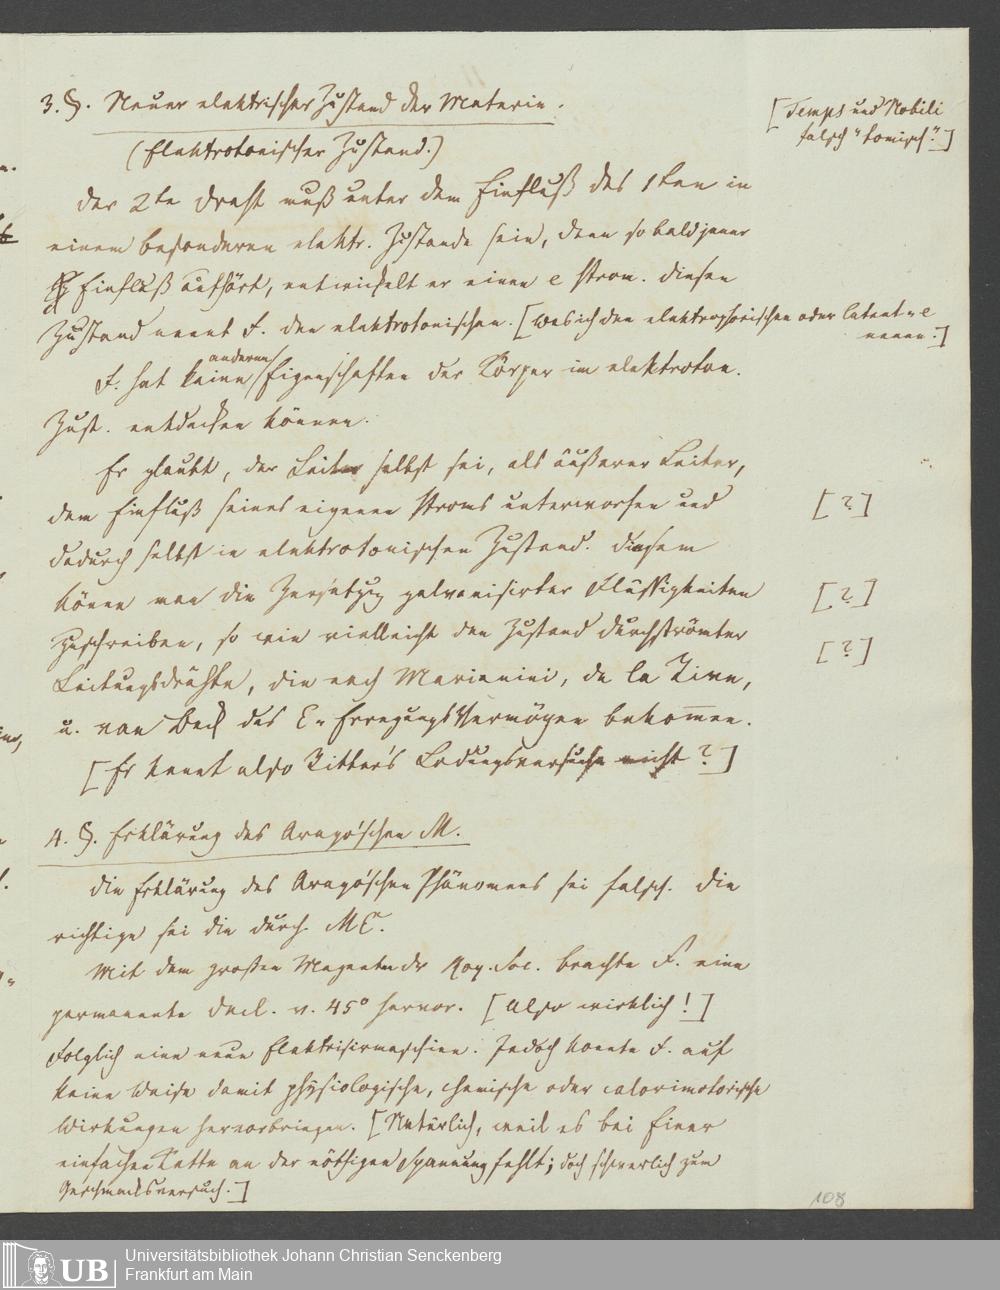 3. §. Neuer elektrischer Zustand der Materie.
(Elektrotonischer Zustand.)
[Temps und Nobili
falsch "tonisch".]
Der 2te Draht muß unter dem Einfluß des 1ten in
einem besonderen elektr. Zustande sein, denn so bald jener
Einfluß aufhört, entwickelt er einen e Strom. Diesen
Zustand nennt F. den elektrotonischen. [Was ich den elektrophorischen oder latent-e
nenne.]
F. hat keine anderen Eigenschaften der Körper im elektroton.
Zust. entdecken können.
Er glaubt, der Leiter selbst sei, als äußerer Leiter,
dem Einfluß seines eigenen Stroms unterworfen und
[?]
dadurch selbst in elektrotonischen Zustand. Diesem
könne man die Zersetzung galvanisirter Flüssigkeiten
[?]
zuschreiben, so wie vielleicht den Zustand durchströmter
[?]
Leitungsdrähte, die nach Marianini, de la Rive,
u. van Beck das E-Erregungsvermögen bekommen.
[Er kennt also Ritter's Ladungsversuche nicht?]
4. §. Erklärung des Arago'schen M.
Die Erklärung des Arago'schen Phänomens sei falsch. Die
richtige sei die durch ME.
Mit dem großen Magneten der Roy. Soc. brachte F. eine
permanente Decl. v. 45° hervor. [Also wirklich!]
Folglich eine neue Elektrisirmaschine. Jedoch konnte F. auf
keine Weise damit physiologische, chemische oder calorimotorische
Wirkungen hervorbringen. [Natürlich, weil es bei Einer
einfachen Kette an der nöthigen Spannung fehlt; doch schwerlich zum
Geschmacksversuch.]
108
UB
Universitätsbibliothek Johann Christian Senckenberg
Frankfurt am Main